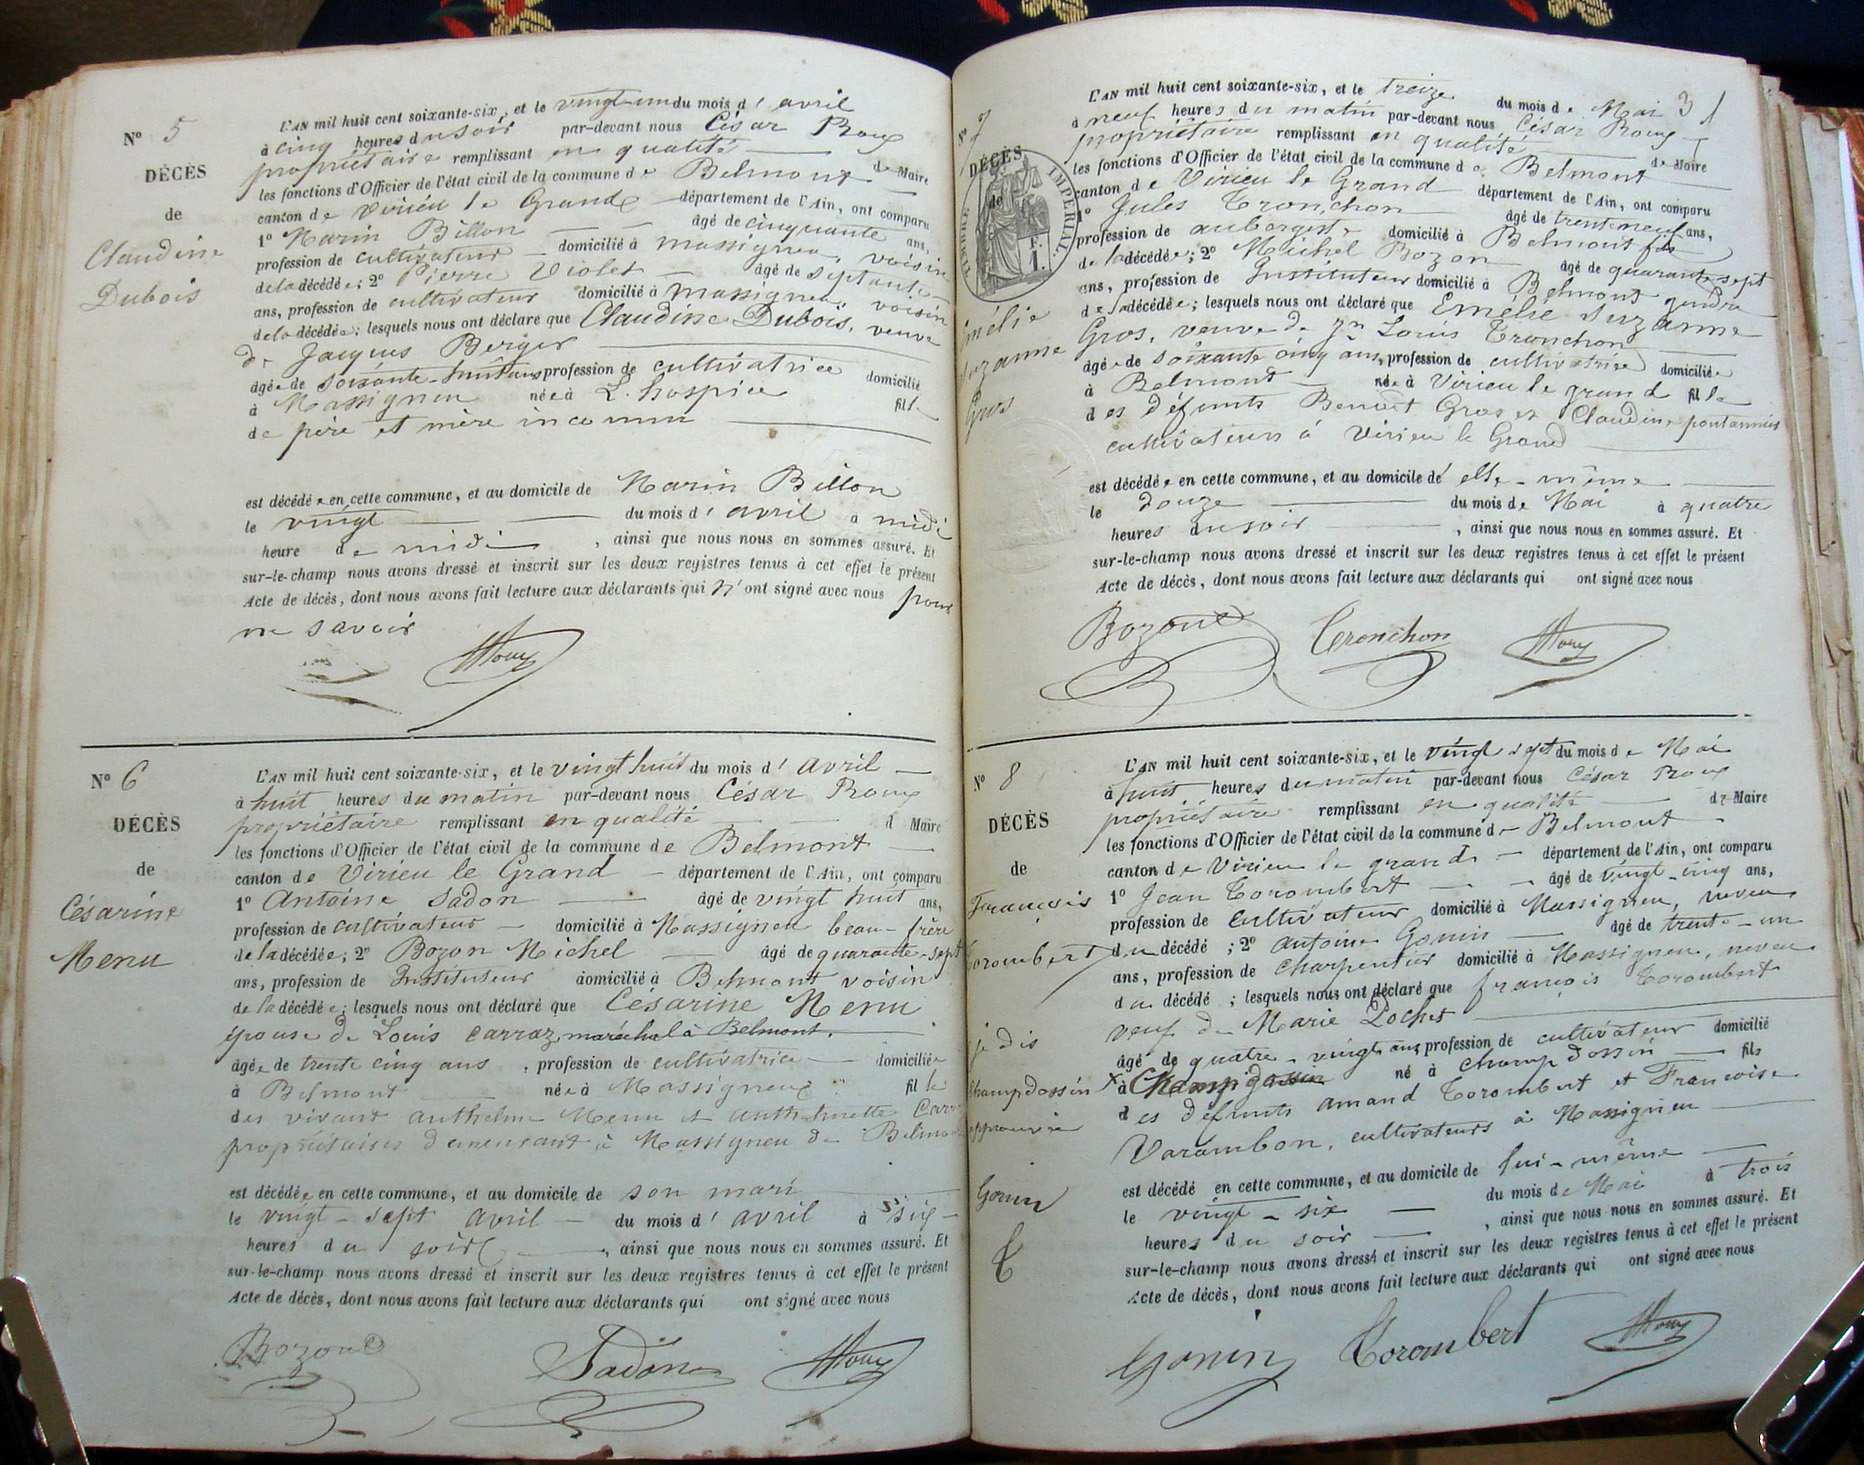 N° 5
DÉCÈS
de
Claudine
Dubois
L'AN mil huit cent soixante-six, et le vingt-un du mois d' avril
à cinq heures du soir par-devant nous César Roux
propriétaire remplissant en qualité de Maire
les fonctions d'Officier de l'état civil de la commune de Belmont
canton de Virieu le Grand département de l'Ain, ont comparu
1° Marin Billon âgé de cinquante ans,
profession de cultivateur domicilié à massigneu, voisin
de la décédée; 2° Pierre Violet âgé de septante
ans, profession de cultivateur domicilié à massigneu, voisin
de la décédée; lesquels nous ont déclaré que Claudine Dubois, veuve
de Jacques Berger
âgée de soixante-huit ans profession de cultivatrice domicilié
à Massigneu née à L'hospice fille
de père et mère inconnu
est décédée en cette commune, et au domicile de Marin Billon
le vingt du mois d' avril à midi
heure de midi, ainsi que nous nous en sommes assuré. Et
sur-le-champ nous avons dressé et inscrit sur les deux registres tenus à cet effet le présent
Acte de décès, dont nous avons fait lecture aux déclarants qui n'ont signé avec nous pour
ne savoir
Roux
N° 6
DÉCÈS
de
Césarine
Menu
L'AN mil huit cent soixante-six, et le vingt huit du mois d' avril
à huit heures du matin par-devant nous César Roux
propriétaire remplissant en qualité d Maire
les fonctions d'Officier de l'état civil de la commune de Belmont
canton de Virieu le Grand département de l'Ain, ont comparu
1° Antoine Sadon âgé de vingt huit ans,
profession de cultivateur domicilié à Massigneu beau-frère
de la décédée; 2° Bozon Michel âgé de quarante-sept
ans, profession de Instituteur domicilié à Belmont voisin
de la décédée; lesquels nous ont déclaré que Césarine Menu
épouse de Louis Carraz, maréchal à Belmont.
âgée de trente cinq ans, profession de cultivatrice domiciliée
à Belmont née à Massigneu fille
des vivant Anthelme Menu et Anthelmette Carr
propriétaires demeurant à Massigneu de Belmo
est décédée en cette commune, et au domicile de son mari
le vingt-sept avril du mois d' avril à six
heures du soir, ainsi que nous nous en sommes assuré. Et
sur-le-champ nous avons dressé et inscrit sur les deux registres tenus à cet effet le présent
Acte de décès, dont nous avons fait lecture aux déclarants qui ont signé avec nous
Bozon Sadon Roux
31
N° 7
DÉCÈS
de
TIMBRE IMPÉRIAL
1 F.
Emélie
Suzanne
Gros
L'AN mil huit cent soixante-six, et le treize du mois de Mai
à neuf heures du matin par-devant nous César Roux
propriétaire remplissant en qualité de Maire
les fonctions d'Officier de l'état civil de la commune de Belmont
canton de Virieu le Grand département de l'Ain, ont comparu
1° Jules Tronchon âgé de trente neuf ans,
profession de aubergiste domicilié à Belmont fils
de la décédée; 2° Michel Bozon âgé de quarante-sept
ans, profession de Instituteur domicilié à Belmont gendre
de la décédée; lesquels nous ont déclaré que Emélie Suzanne
Gros, veuve de Jn Louis Tronchon
âgée de soixante cinq ans, profession de cultivatrice domiciliée
à Belmont née à Virieu le grand fille
des défunts Benoit Gros et Claudine pontannier
cultivateurs à Virieu le Grand
est décédée en cette commune, et au domicile d' elle-même
le douze du mois de Mai à quatre
heures du soir, ainsi que nous nous en sommes assuré. Et
sur-le-champ nous avons dressé et inscrit sur les deux registres tenus à cet effet le présent
Acte de décès, dont nous avons fait lecture aux déclarants qui ont signé avec nous
Bozon Tronchon Roux
N° 8
DÉCÈS
de
François
Torombert
je dis
champdossin
approuvé
Gonin
T
L'AN mil huit cent soixante-six, et le vingt sept du mois de Mai
à huit heures du matin par-devant nous César Roux
propriétaire remplissant en qualité de Maire
les fonctions d'Officier de l'état civil de la commune de Belmont
canton de Virieu le grand département de l'Ain, ont comparu
1° Jean Torombert âgé de vingt-cinq ans,
profession de cultivateur domicilié à Massigneu, neveu
du décédé; 2° Antoine Gonin âgé de trente-un
ans, profession de charpentier domicilié à Massigneu, neveu
du décédé; lesquels nous ont déclaré que françois Torombert
veuf de Marie Pochet
âgé de quatre-vingt ans profession de cultivateur domicilié
à Champdossin né à Champdossin fils
des défunts Amand Torombert et Françoise
Varambon, cultivateurs à Massigneu
est décédé en cette commune, et au domicile de lui-même
le vingt-six du mois de Mai à trois
heures du soir, ainsi que nous nous en sommes assuré. Et
sur-le-champ nous avons dressé et inscrit sur les deux registres tenus à cet effet le présent
Acte de décès, dont nous avons fait lecture aux déclarants qui ont signé avec nous
Gonin Torombert Roux